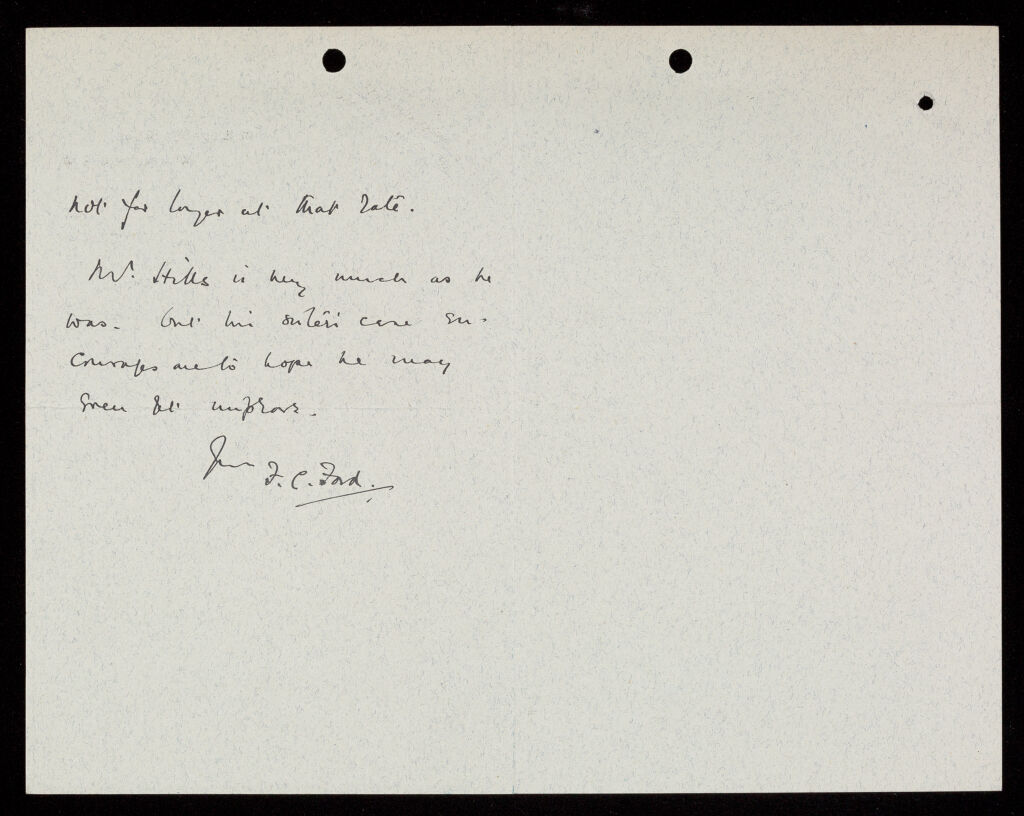 not for longer at that rate.
Mr. Hills is very much as he
was. but his sister's case en-
courages me to hope he may
even yet improve.
Yrs
F. C. Ford.